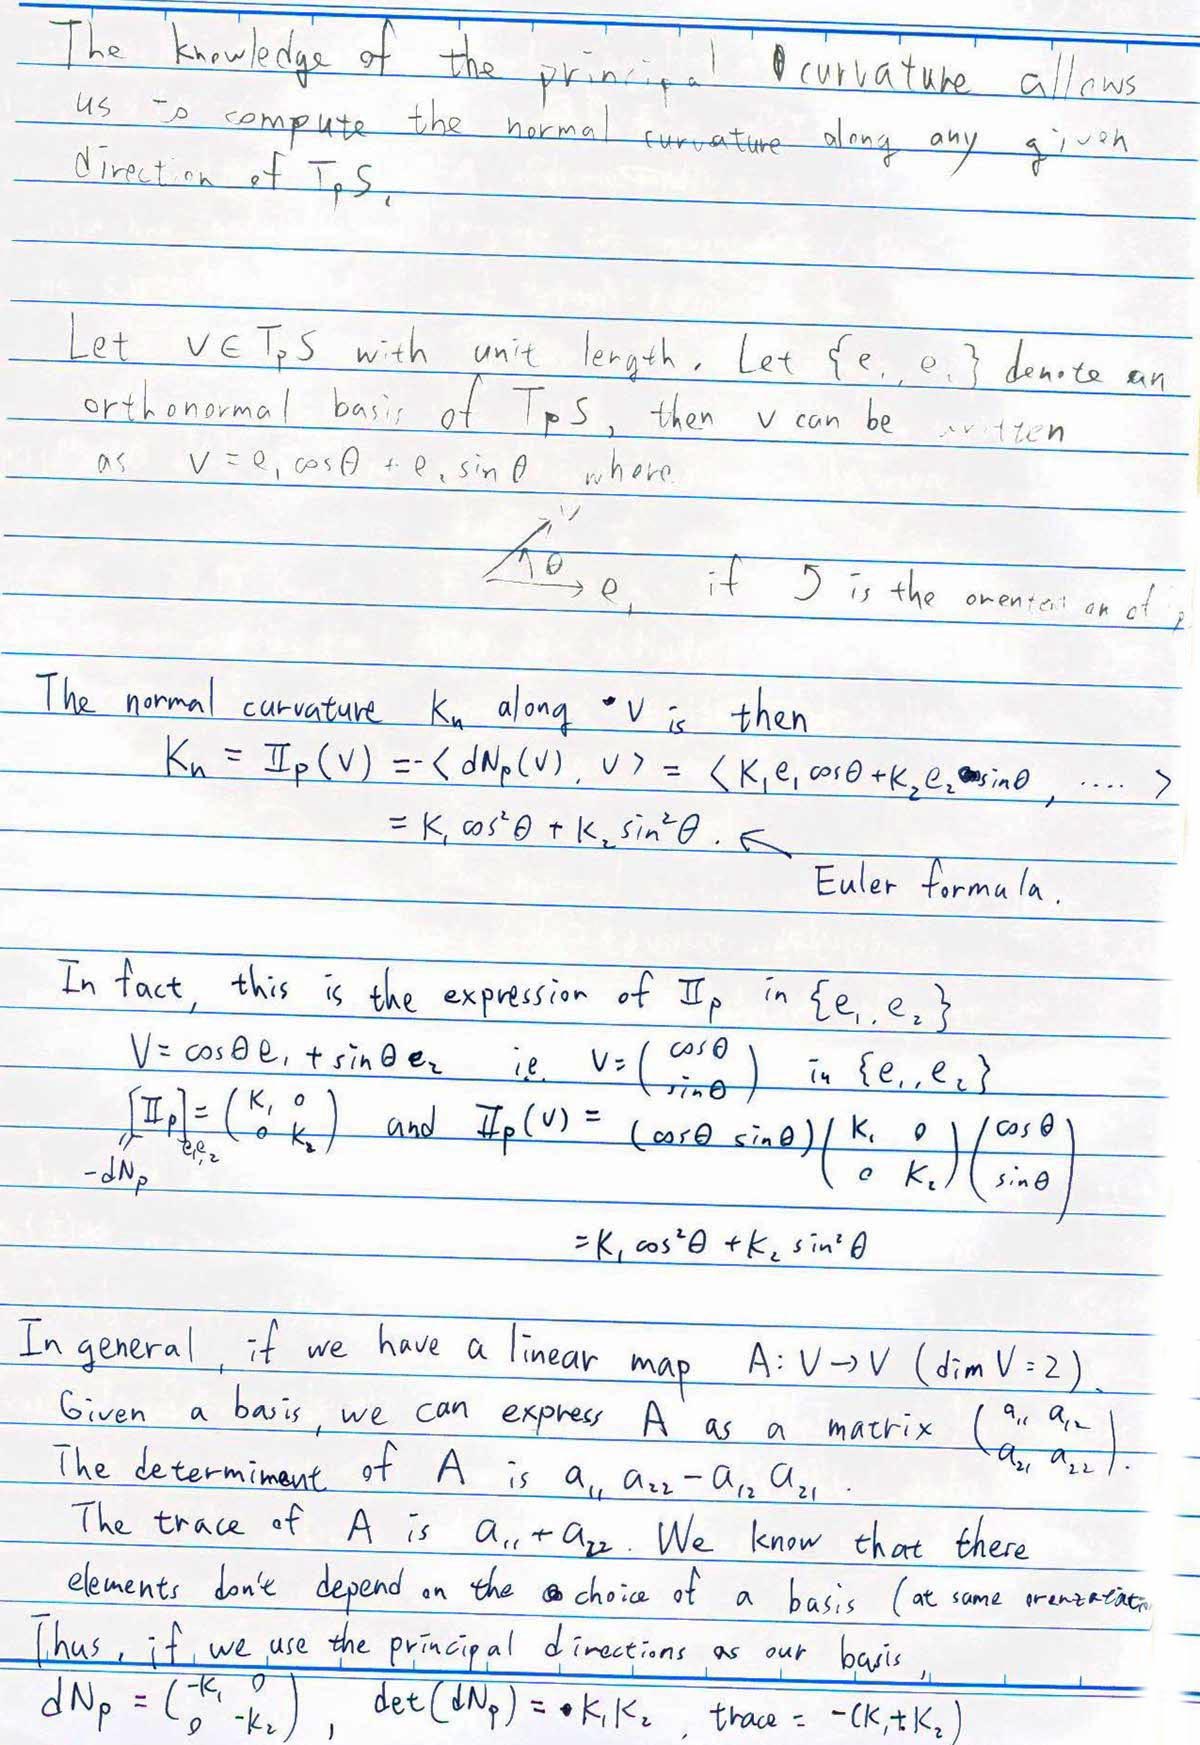 The knowledge of the principal curvature allows
us to compute the normal curvature along any given
direction of TpS.
Let v ∈ TpS with unit length. Let {e₁, e₂} denote an
orthonormal basis of TpS, then v can be written
as v = e₁ cosθ + e₂ sinθ where
v
θ
e₁ if ↺ is the orientation of
The normal curvature Kn along v is then
Kn = IIp(v) = -<dNp(v), v> = <K₁e₁cosθ + K₂e₂ sinθ, .... >
= K₁ cos²θ + K₂ sin²θ. ↖
Euler formula.
In fact, this is the expression of IIp in {e₁, e₂}
V = cosθ e₁ + sinθ e₂ i.e. V = (cosθ sinθ) in {e₁, e₂}
[IIp]e₁,e₂ = (K₁ 0 0 K₂) and IIp(v) = (cosθ sinθ)(K₁ 0 0 K₂)(cosθ sinθ)
-dNp
= K₁ cos²θ + K₂ sin²θ
In general, if we have a linear map A: V → V (dim V = 2).
Given a basis, we can express A as a matrix (a₁₁ a₁₂ a₂₁ a₂₂).
The determiment of A is a₁₁ a₂₂ - a₁₂ a₂₁.
The trace of A is a₁₁ + a₂₂. We know that there
elements don't depend on the choice of a basis (at same
Thus, if we use the principal directions as our basis,
dNp = (-K₁ 0 0 -K₂), det(dNp) = K₁K₂, trace = -(K₁+K₂)